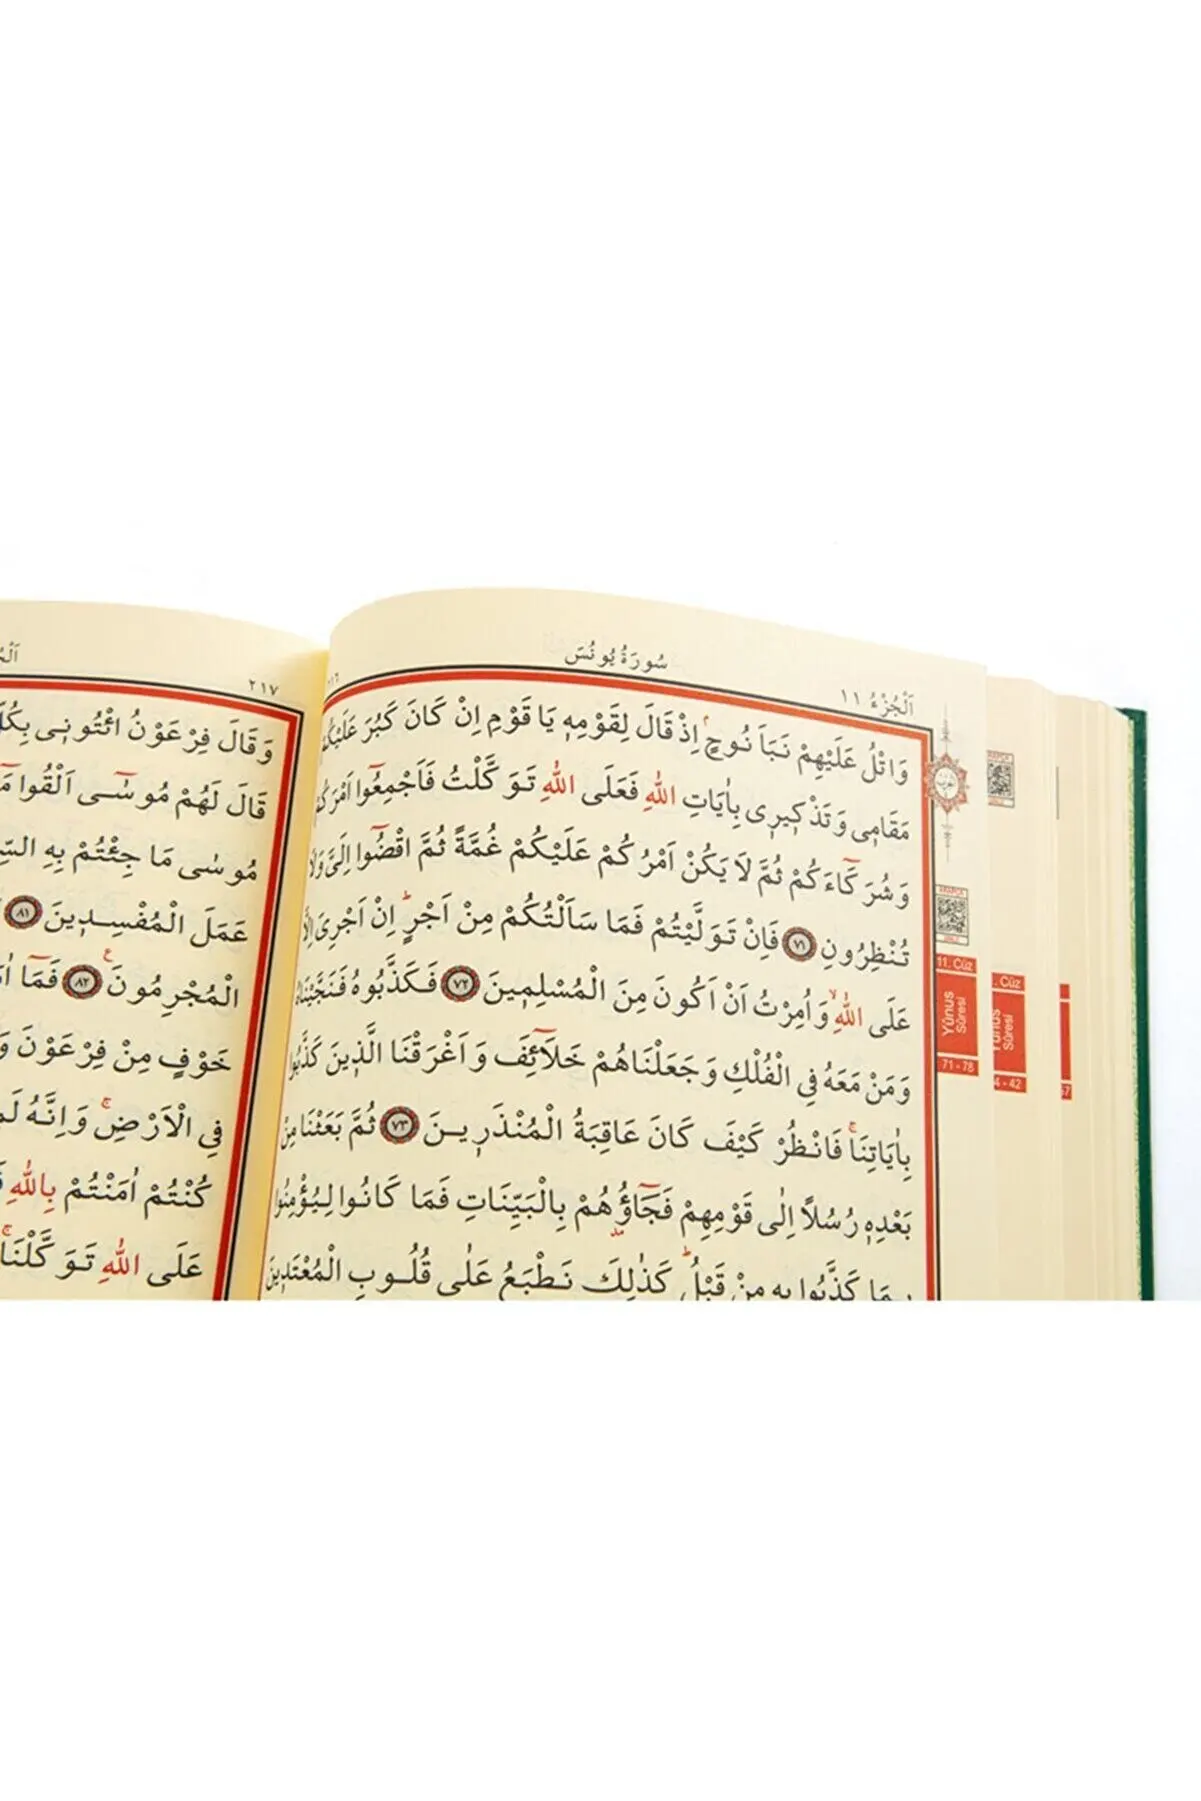 سُورَةُ يُونُسَ
اَلْجُزْءُ ١١
وَاتْلُ عَلَيْهِمْ نَبَاَ نُوحٍۢ اِذْ قَالَ لِقَوْمِه۪ يَا قَوْمِ اِنْ كَانَ كَبُرَ عَلَيْكُمْ
مَقَام۪ي وَتَذْك۪ير۪ي بِاٰيَاتِ اللّٰهِ فَعَلَى اللّٰهِ تَوَكَّلْتُ فَاَجْمِعُٓوا اَمْرَكُمْ
وَشُرَكَٓاءَكُمْ ثُمَّ لَا يَكُنْ اَمْرُكُمْ عَلَيْكُمْ غُمَّةً ثُمَّ اقْضُٓوا اِلَيَّ وَلَا
تُنْظِرُونِ ﴿٧١﴾ فَاِنْ تَوَلَّيْتُمْ فَمَا سَاَلْتُكُمْ مِنْ اَجْرٍۜ اِنْ اَجْرِيَ اِلَّا
عَلَى اللّٰهِۙ وَاُمِرْتُ اَنْ اَكُونَ مِنَ الْمُسْلِم۪ينَ ﴿٧٢﴾ فَكَذَّبُوهُ فَنَجَّيْنَاهُ
وَمَنْ مَعَهُ فِي الْفُلْكِ وَجَعَلْنَاهُمْ خَلَٓائِفَ وَاَغْرَقْنَا الَّذ۪ينَ كَذَّبُوا
بِاٰيَاتِنَاۚ فَانْظُرْ كَيْفَ كَانَ عَاقِبَةُ الْمُنْذَر۪ينَ ﴿٧٣﴾ ثُمَّ بَعَثْنَا مِنْ
بَعْدِه۪ رُسُلًا اِلٰى قَوْمِهِمْ فَجَٓاؤُ۫هُمْ بِالْبَيِّنَاتِ فَمَا كَانُوا لِيُؤْمِنُوا
بِمَا كَذَّبُوا بِه۪ مِنْ قَبْلُۜ كَذٰلِكَ نَطْبَعُ عَلٰى قُلُوبِ الْمُعْتَد۪ينَ
11. Cüz
Yûnus
Sûresi
71 - 78
Cüz
Yûnus
Sûresi
4 - 42
٢١٧
وَقَالَ فِرْعَوْنُ ائْتُون۪ي
قَالَ لَهُمْ مُوسٰٓى اَلْقُوا
مُوسٰى مَا جِئْتُمْ بِهِ
عَمَلَ الْمُفْسِد۪ينَ ﴿٨١﴾
الْمُجْرِمُونَ۟ ﴿٨٢﴾ فَمَٓا
خَوْفٍ مِنْ فِرْعَوْنَ
فِي الْاَرْضِۚ وَاِنَّهُ
كُنْتُمْ اٰمَنْتُمْ بِاللّٰهِ
عَلَى اللّٰهِ تَوَكَّلْنَاۚ